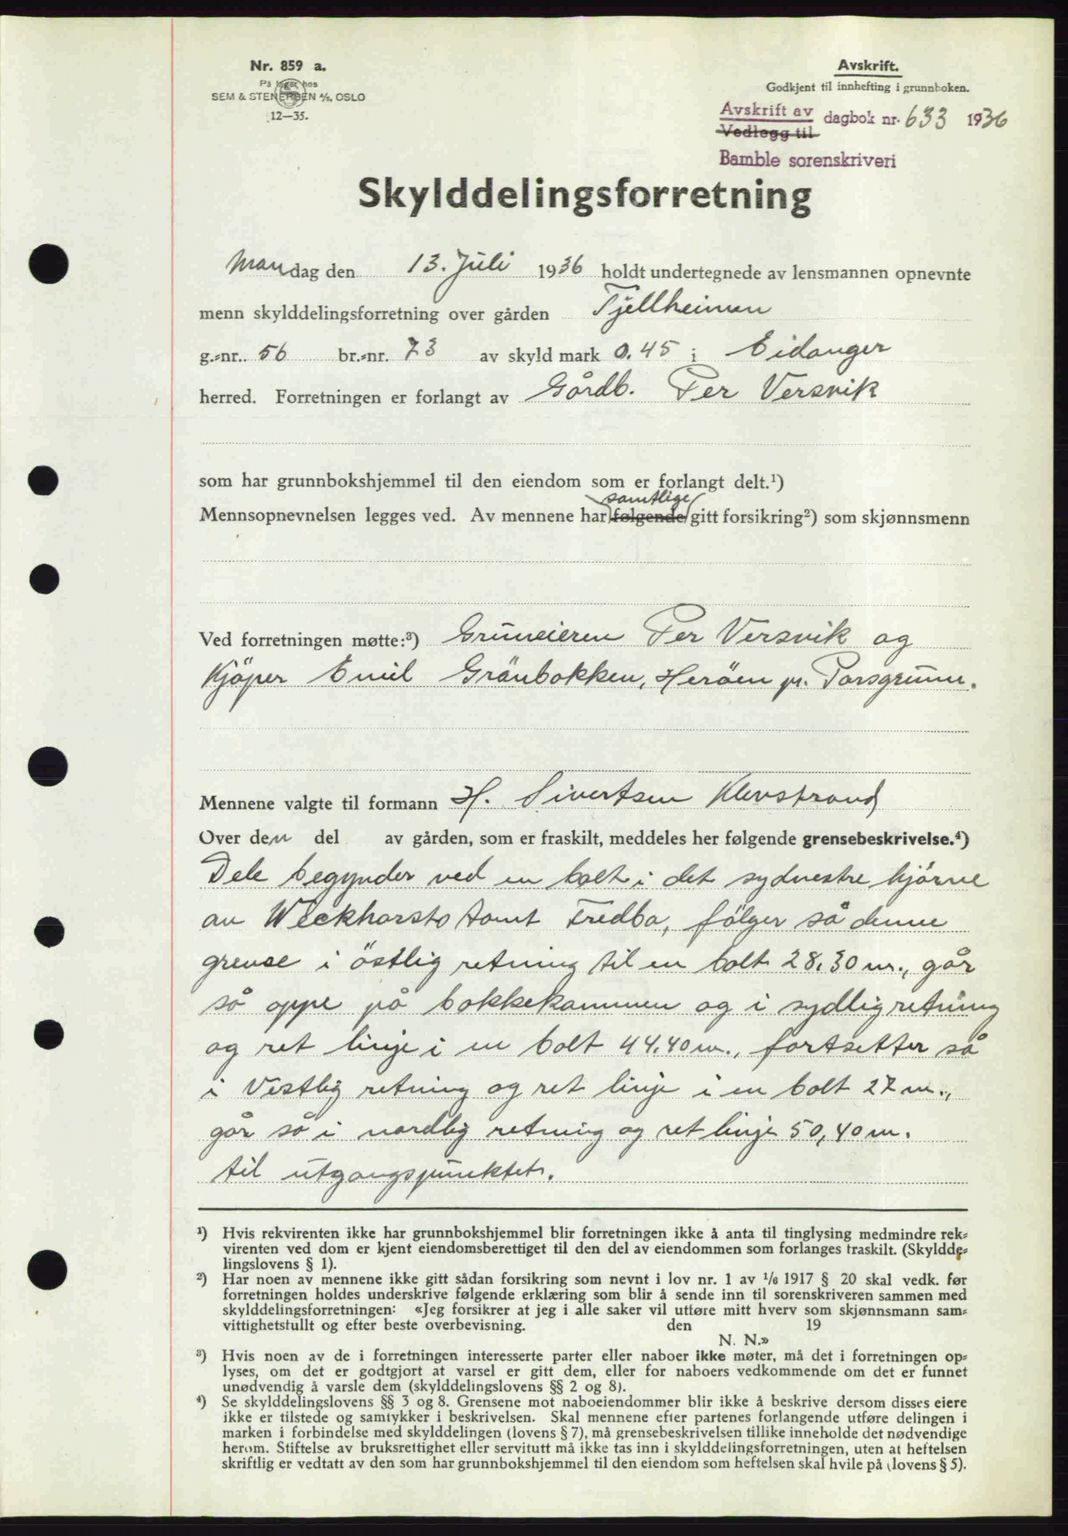 Nr. 859 a.
På lager hos
SEM & STENERSEN A/S, OSLO
12-35.
Avskrift.
Godkjent til innhefting i grunnboken.
Avskrift av
Vedlegg til
dagbok nr. 633 1936
Bamble sorenskriveri
Skylddelingsforretning
Mandag den 13. Juli 1936 holdt undertegnede av lensmannen opnevnte
menn skylddelingsforretning over gården Fjellheimen
g.-nr. 56 br.-nr. 73 av skyld mark 0.45 i Eidanger
herred. Forretningen er forlangt av Gårdb. Per Versvik
som har grunnbokshjemmel til den eiendom som er forlangt delt.¹)
samtlige
Mennsopnevnelsen legges ved. Av mennene har følgende gitt forsikring²) som skjønnsmenn
Ved forretningen møtte:³) Gruneieren Per Versvik og
Kjöper Emil Gränbakken, Heröen pr. Porsgrunn.
Mennene valgte til formann H. Sivertsen Klevstrand
Over den del av gården, som er fraskilt, meddeles her følgende grensebeskrivelse.⁴)
Dele begynder ved en bolt i det sydvestre hjörne
av Weckhorsts tomt Fredbo, fölger så denne
grense i östlig retning til en bolt 28,30 m., går
så oppe på bakkekammen og i sydlig retning
og ret linje i en bolt 44,40 m., fortsetter så
i vestlig retning og ret linje i en bolt 27 m.,
går så i nordlig retning og ret linje 50,40 m.
til utgangspunktet.
¹) Hvis rekvirenten ikke har grunnbokshjemmel blir forretningen ikke å anta til tinglysing medmindre rek-
virenten ved dom er kjent eiendomsberettiget til den del av eiendommen som forlanges fraskilt. (Skyldde-
lingslovens § 1).
²) Har noen av mennene ikke gitt sådan forsikring som nevnt i lov nr. 1 av 1/6 1917 § 20 skal vedk. før
forretningen holdes underskrive følgende erklæring som blir å sende inn til sorenskriveren sammen med
skylddelingsforretningen: «Jeg forsikrer at jeg i alle saker vil utføre mitt hverv som skjønnsmann sam-
vittighetsfullt og efter beste overbevisning. den 19
N. N.»
³) Hvis noen av de i forretningen interesserte parter eller naboer ikke møter, må det i forretningen op-
lyses, om det er godtgjort at varsel er gitt dem, eller for naboers vedkommende om det er funnet
unødvendig å varsle dem (skylddelingslovens §§ 2 og 8).
⁴) Se skylddelingslovens §§ 3 og 8. Grensene mot naboeiendommer blir ikke å beskrive dersom disses eiere
ikke er tilstede og samtykker i beskrivelsen. Skal mennene efter partenes forlangende utføre delingen i
marken i forbindelse med skylddelingen (lovens § 7), må grensebeskrivelsen tillike inneholde det nødvendige
herom. Stiftelse av bruksrettighet eller servitutt må ikke tas inn i skylddelingsforretningen, uten at heftelsen
skriftlig er vedtatt av den som har grunnbokshjemmel til den eiendom som heftelsen skal hvile på (lovens § 5).